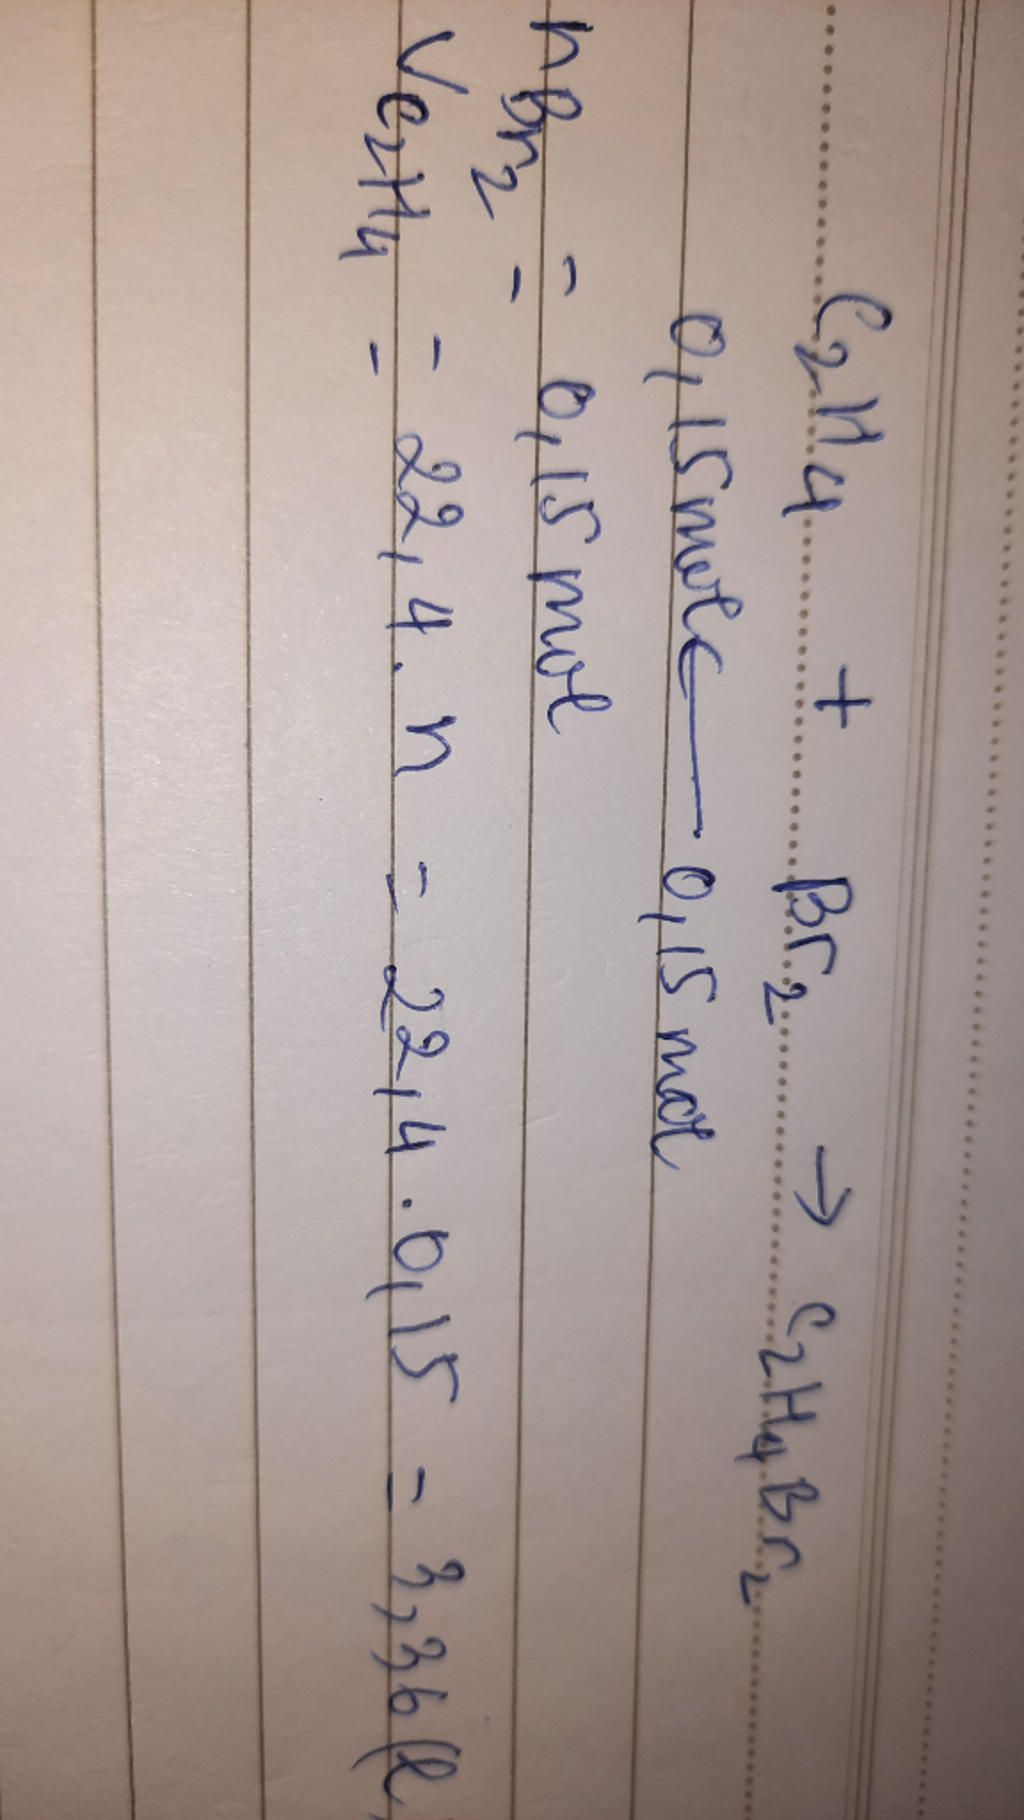 C₂H₄ + Br₂ → C₂H₄Br₂
0,15mol ← 0,15mol
nBr₂ = 0,15mol
VC₂H₄ = 22,4.n = 22,4.0,15 = 3,36(l